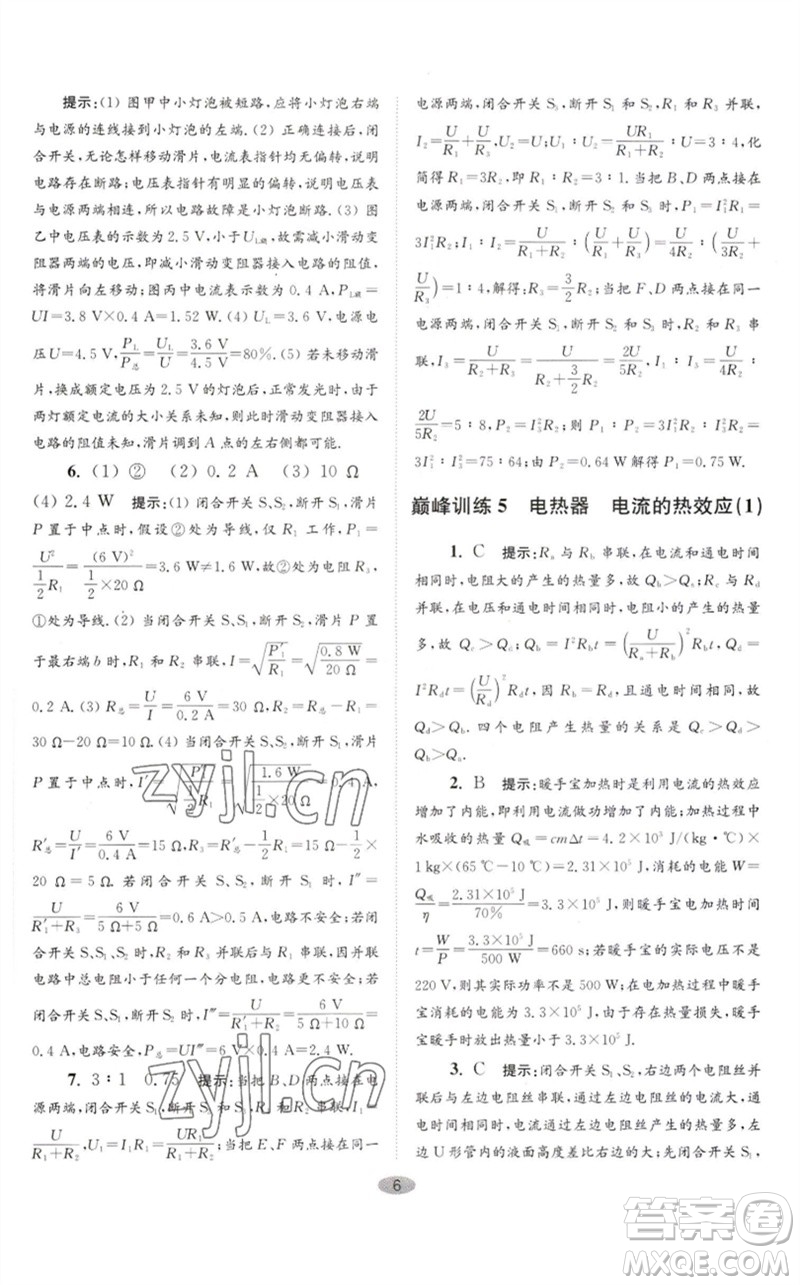 提示:(1) 图甲中小灯泡被短路,应将小灯泡右端
与电源的连线接到小灯泡的左端.(2) 正确连接后,闭
合开关,无论怎样移动滑片,电流表指针均无偏转,说明
电路存在断路;电压表指针有明显的偏转,说明电压表
与电源两端相连,所以电路故障是小灯泡断路.(3) 图
乙中电压表的示数为2.5 V,小于U_L额,故需减小滑动变
阻器两端的电压,即减小滑动变阻器接入电路的阻值,
将滑片向左移动;图丙中电流表示数为0.4 A,P_L额=
UI=3.8 V×0.4 A=1.52 W.(4) U_L=3.6 V,电源电
压U=4.5 V,P_L/P_总=U_L/U=3.6 V/4.5 V=80%.(5) 若未移动滑
片,换成额定电压为2.5 V的灯泡后,正常发光时,由于
两灯额定电流的大小关系未知,则此时滑动变阻器接入
电路的阻值未知,滑片调到A点的左右侧都可能.
6. (1) ② (2) 0.2 A (3) 10 Ω
(4) 2.4 W 提示:(1) 闭合开关S、S₂,断开S₁,滑片
P置于中点时,假设②处为导线,仅R₁工作,P₁=
U²/(½R₁)=(6 V)²/(½×20 Ω)=3.6 W≠1.6 W,故②处为电阻R₃,
①处为导线.(2) 当闭合开关S、S₁,断开S₂,滑片P置
于最右端b时,R₁和R₂串联,I=√(P′₁/R₁)=√(0.8 W/20 Ω)=
0.2 A.(3) R_总=U/I=6 V/0.2 A=30 Ω,R₂=R_总-R₁=
30 Ω-20 Ω=10 Ω.(4) 当闭合开关S、S₂,断开S₁,滑片
P置于中点时,I′=√(P₁/(½R₁))=√(1.6 W/(½×20 Ω))=0.4 A,
R′_总=U/I′=6 V/0.4 A=15 Ω,R₃=R′_总-½R₁=15 Ω-½×
20 Ω=5 Ω.若闭合开关S、S₂,断开S₁时,I″=
U/(R′₁+R₃)=6 V/(5 Ω+5 Ω)=0.6 A>0.5 A,电路不安全;若闭
合开关S、S₁、S₂时,R₂和R₃并联后与R₁串联,并联
电路中总电阻小于任何一个分电阻,电路不安全;若闭
合开关S、S₁,断开S₂时,I‴=U/(R′₁+R₂)=6 V/(5 Ω+10 Ω)=
0.4 A,电路安全,P_总=UI‴=6 V×0.4 A=2.4 W.
7. 3∶1 0.75 提示:当把B、D两点接在
电源两端,闭合开关S₁,断开S₂和S₃,R₁和R₂串联,I₁=
U/(R₁+R₂),U₁=I₁R₁=UR₁/(R₁+R₂);当把E、F两点接在同一
电源两端,闭合开关S₃,断开S₁和S₂,R₁和R₃并联,
I₂=U/R₁+U/R₃,U₂=U;U₁∶U₂=UR₁/(R₁+R₂)∶U=3∶4,化
简得R₁=3R₂,即R₁∶R₂=3∶1.I₁∶I₂=
U/(R₁+R₂)∶(U/R₁+U/R₃)=U/4R₂∶(U/3R₂+
U/R₃)=1∶4,解得:R₃=3/2 R₂;当把B、D两点接在
电源两端,闭合开关S₁,断开S₂和S₃时,P₁=I₁²R₁=
3I₁²R₂=0.75 W;当把F、D两点接在同一
电源两端,只闭合开关S₂时,R₂和R₃串
联,I₃=U/(R₂+R₃)=U/(R₂+3/2 R₂)=2U/5R₂,I₁∶I₃=U/4R₂∶
2U/5R₂=5∶8,P₂=I₃²R₂,P₁∶P₂=3I₁²R₂∶I₃²R₂=
3I₁²∶I₃²=75∶64;由P₂=0.64 W解得P₁=0.75 W.
巅峰训练5 电热器 电流的热效应(1)
1. C 提示:Rₐ与R_b串联,在电流和通电时间
相同时,电阻大的产生的热量多,故Q_b>Qₐ;R_c与R_d
并联,在电压和通电时间相同时,电阻小的产生的热量
多,故Q_c>Q_d;Q_b=I²R_bt=(U/(Rₐ+R_b))²R_bt,Q_d=
I²R_dt=(U/R_d)²R_dt,通电时间相同,故
Q_d>Q_b.四个电阻产生热量的关系为Q_c>Q_d>
Q_b>Qₐ.
2. B 提示:暖手宝加热时是利用电流的热效应
增加了内能,即利用电流做功增加了内能;加热过程中
水吸收的热量Q_吸=cmΔt=4.2×10³ J/(kg·℃)×
1 kg×(65 ℃-10 ℃)=2.31×10⁵ J,消耗的电能W=
Q_吸/η=2.31×10⁵ J/70%=3.3×10⁵ J,则暖手宝加热时间
t=W/P=3.3×10⁵ J/500 W=660 s;若暖手宝的实际电压不是
220 V,则其实际功率不是500 W;在加热过程中暖手
宝消耗的电能为3.3×10⁵ J,因存在热量损失,暖手宝
暖手时放出的热量小于3.3×10⁵ J.
3. C 提示:闭合开关S₁、S₂,右边两个电阻丝并
联后与左边电阻丝串联,左边电阻丝的电流大,通电时
间相同时,左边电阻丝产生的热量比右边的多,所以左
边U形管内的液面高度差比右边的大;先闭合开关S₁,
6
zyjl.cn
zyjl.cn
答案圈
MXQE.COM